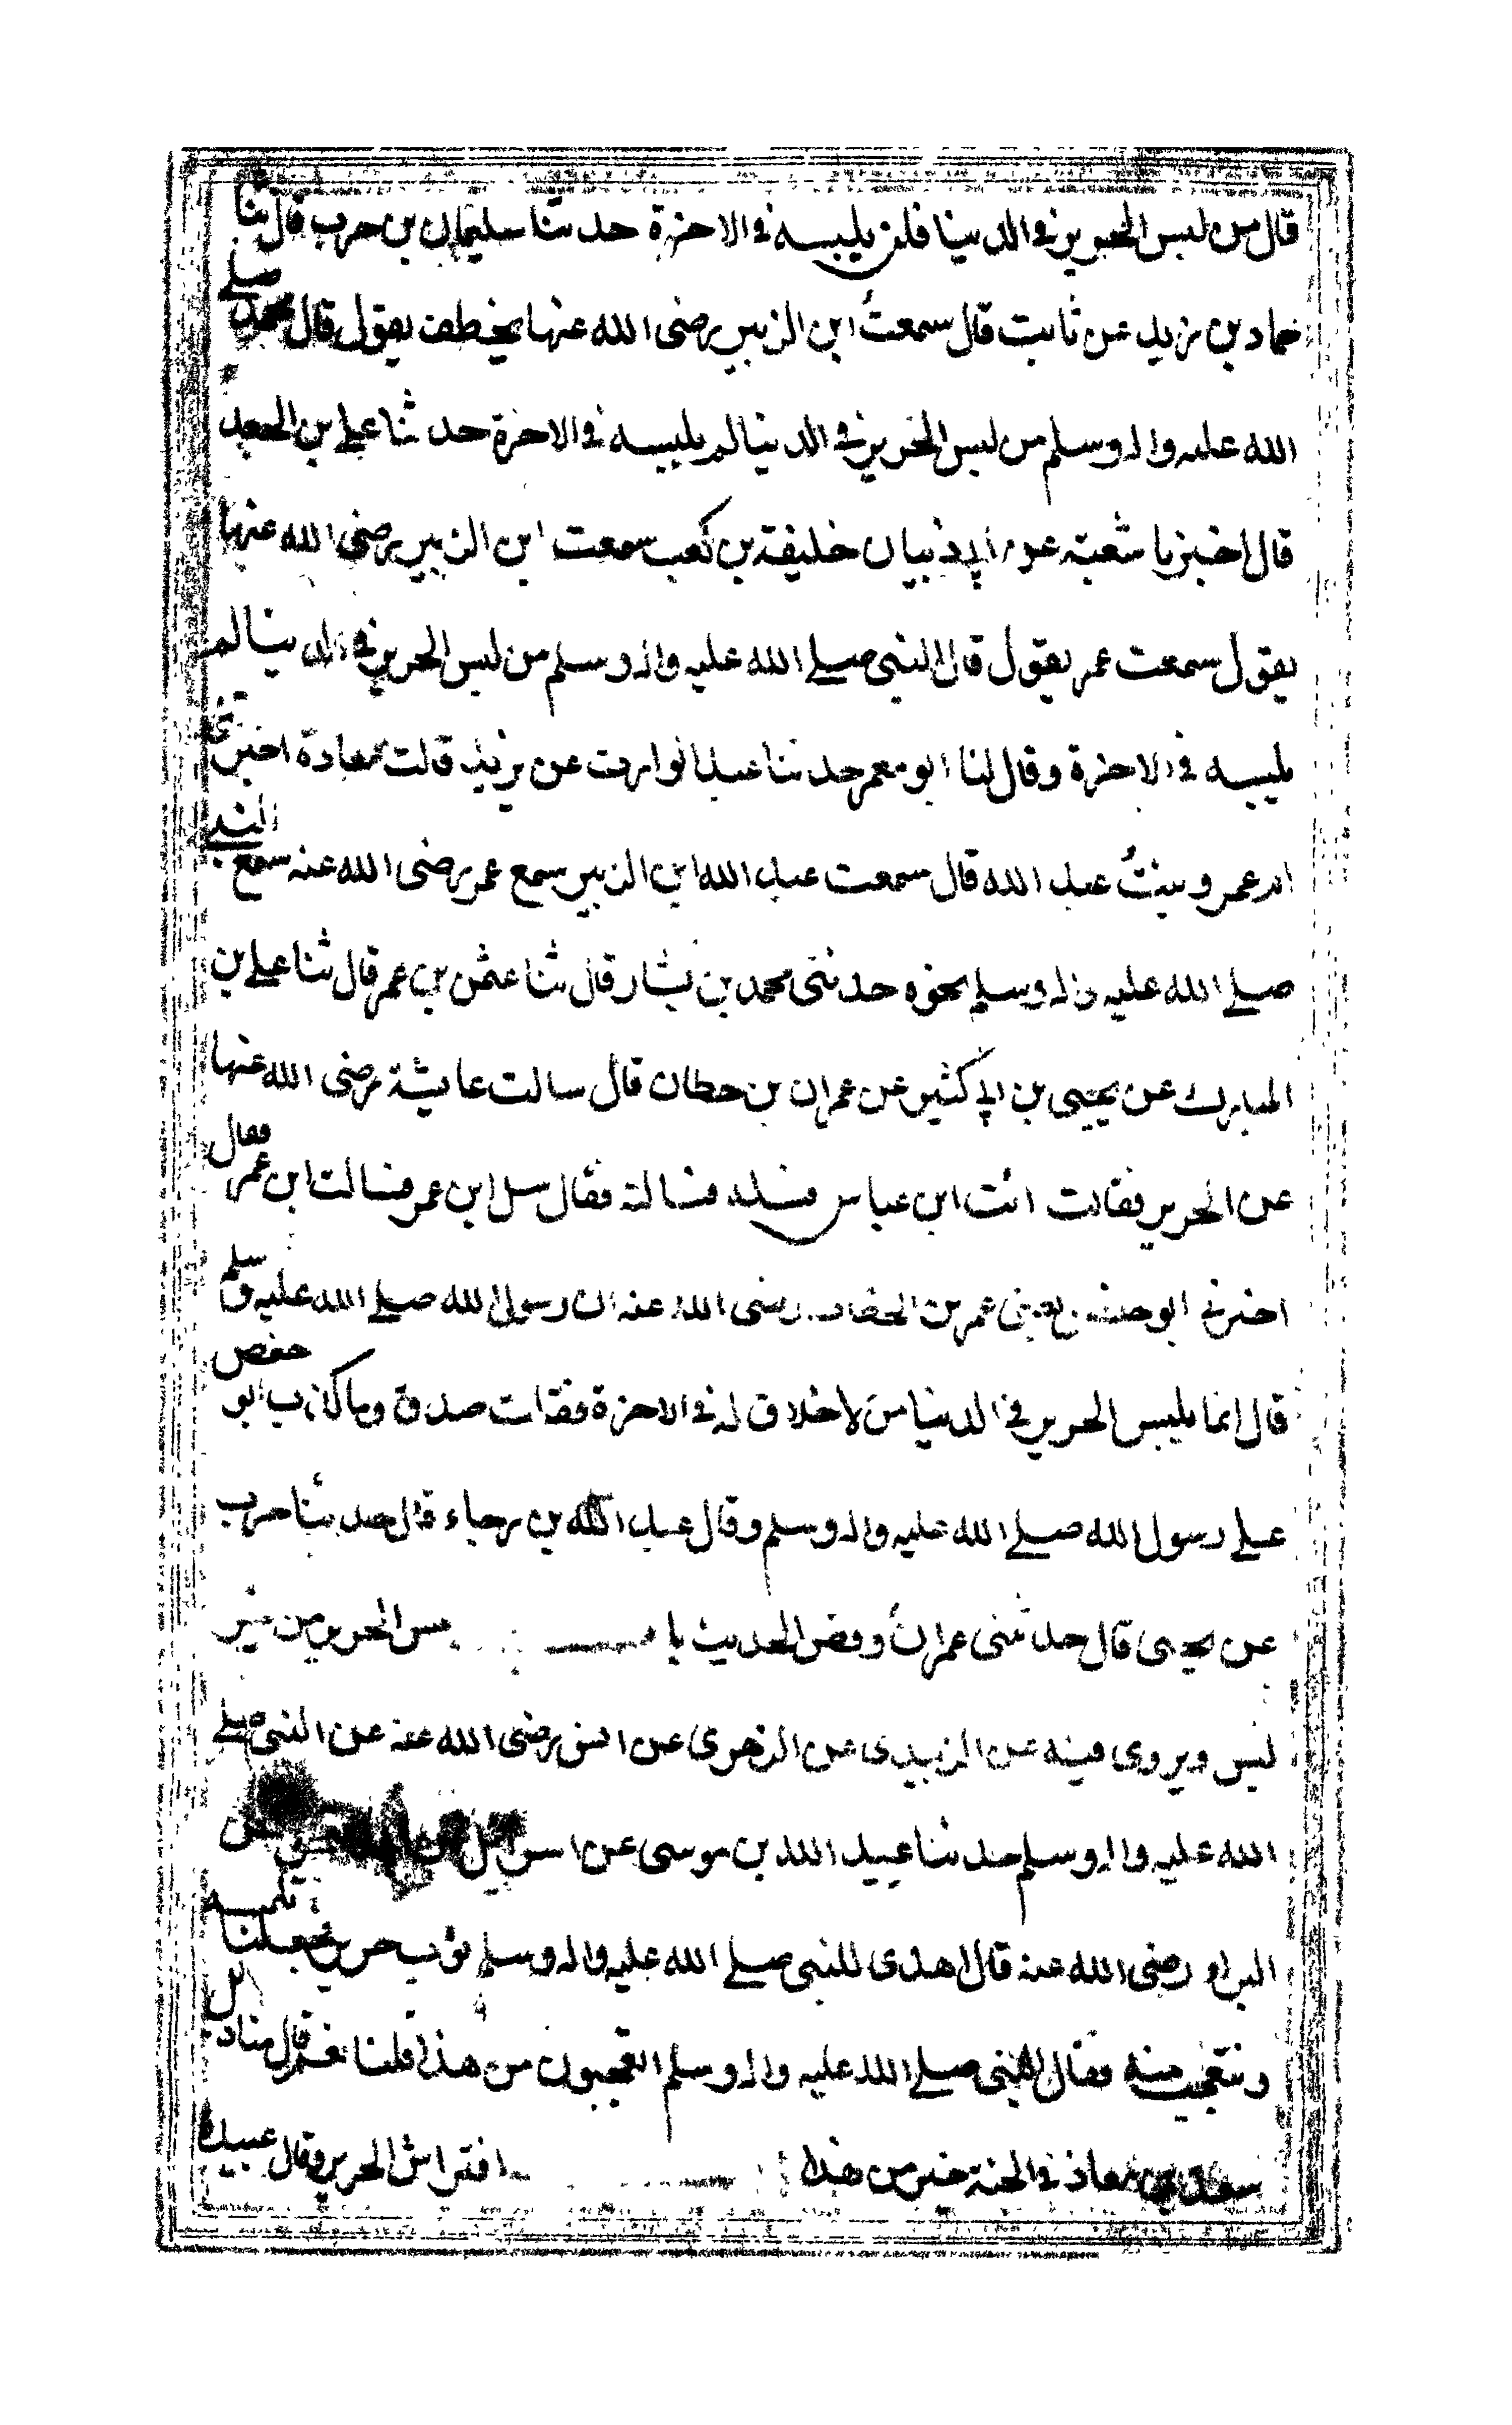 قال من لبس الحرير في الدنيا فلن يلبسه في الاخرة حدثنا سليمان بن حرب قال ثنا
حماد بن زيد عن ثابت قال سمعت ابن الزبير رضى الله عنها يخطف يقول قال محمد صلى
الله عليه واله وسلم من لبس الحرير في الدنيا لم يلبسه في الاخرة حدثنا على بن الجعد
قال اخبرنا شعبة عن ابي ذبيان خليفة بن كعب سمعت ابن الزبير رضى الله عنها
يقول سمعت عمر يقول قال النبي صلى الله عليه واله وسلم من لبس الحرير في الدنيا لم
يلبسه في الاخرة وقال لنا ابو معمر حدثنا عبد الوارث عن يزيد قالت معاذة اخبرتنى
ام عمرو بنت عبد الله قال سمعت عبد الله ابن الزبير سمع عمر رضى الله عنه سمع النبي
صلى الله عليه واله وسلم نحوه حدثنى محمد بن بشار قال ثنا عثمن بن عمر قال ثنا على بن
المبارك عن يحيى بن ابي كثير عن عمران بن حطان قال سالت عايشة رضى الله عنها
عن الحرير فقالت ائت ابن عباس فسله فسالته فقال سل ابن عمر فسالت ابن عمر فقال
اخبرني ابو حفص يعنى عمر بن الخطاب رضى الله عنه ان رسول الله صلى الله عليه وسلم
قال انما يلبس الحرير في الدنيا من لا خلاق له في الاخرة فقلت صدق وما كذب ابو حفص
على رسول الله صلى الله عليه واله وسلم وقال عبد الله بن رجاء قال حدثنا حرب
عن يحيى قال حدثنى عمران وقص الحديث با مس الحرير من غير
لبس ويروى فيه عن الزبيدى عن الزهرى عن انس رضى الله عنه عن النبي صلى
الله عليه واله وسلم حدثنا عبيد الله بن موسى عن اسرائيل عن عن
البراء رضى الله عنه قال اهدى للنبي صلى الله عليه واله وسلم ثوب حرير فجعلنا نلمسه
ونتعجب منه فقال النبي صلى الله عليه واله وسلم اتعجبون من هذا قلنا نعم قال مناديل
سعد بن معاذ في الجنة خير من هذا افتراش الحرير وقال عبيدة